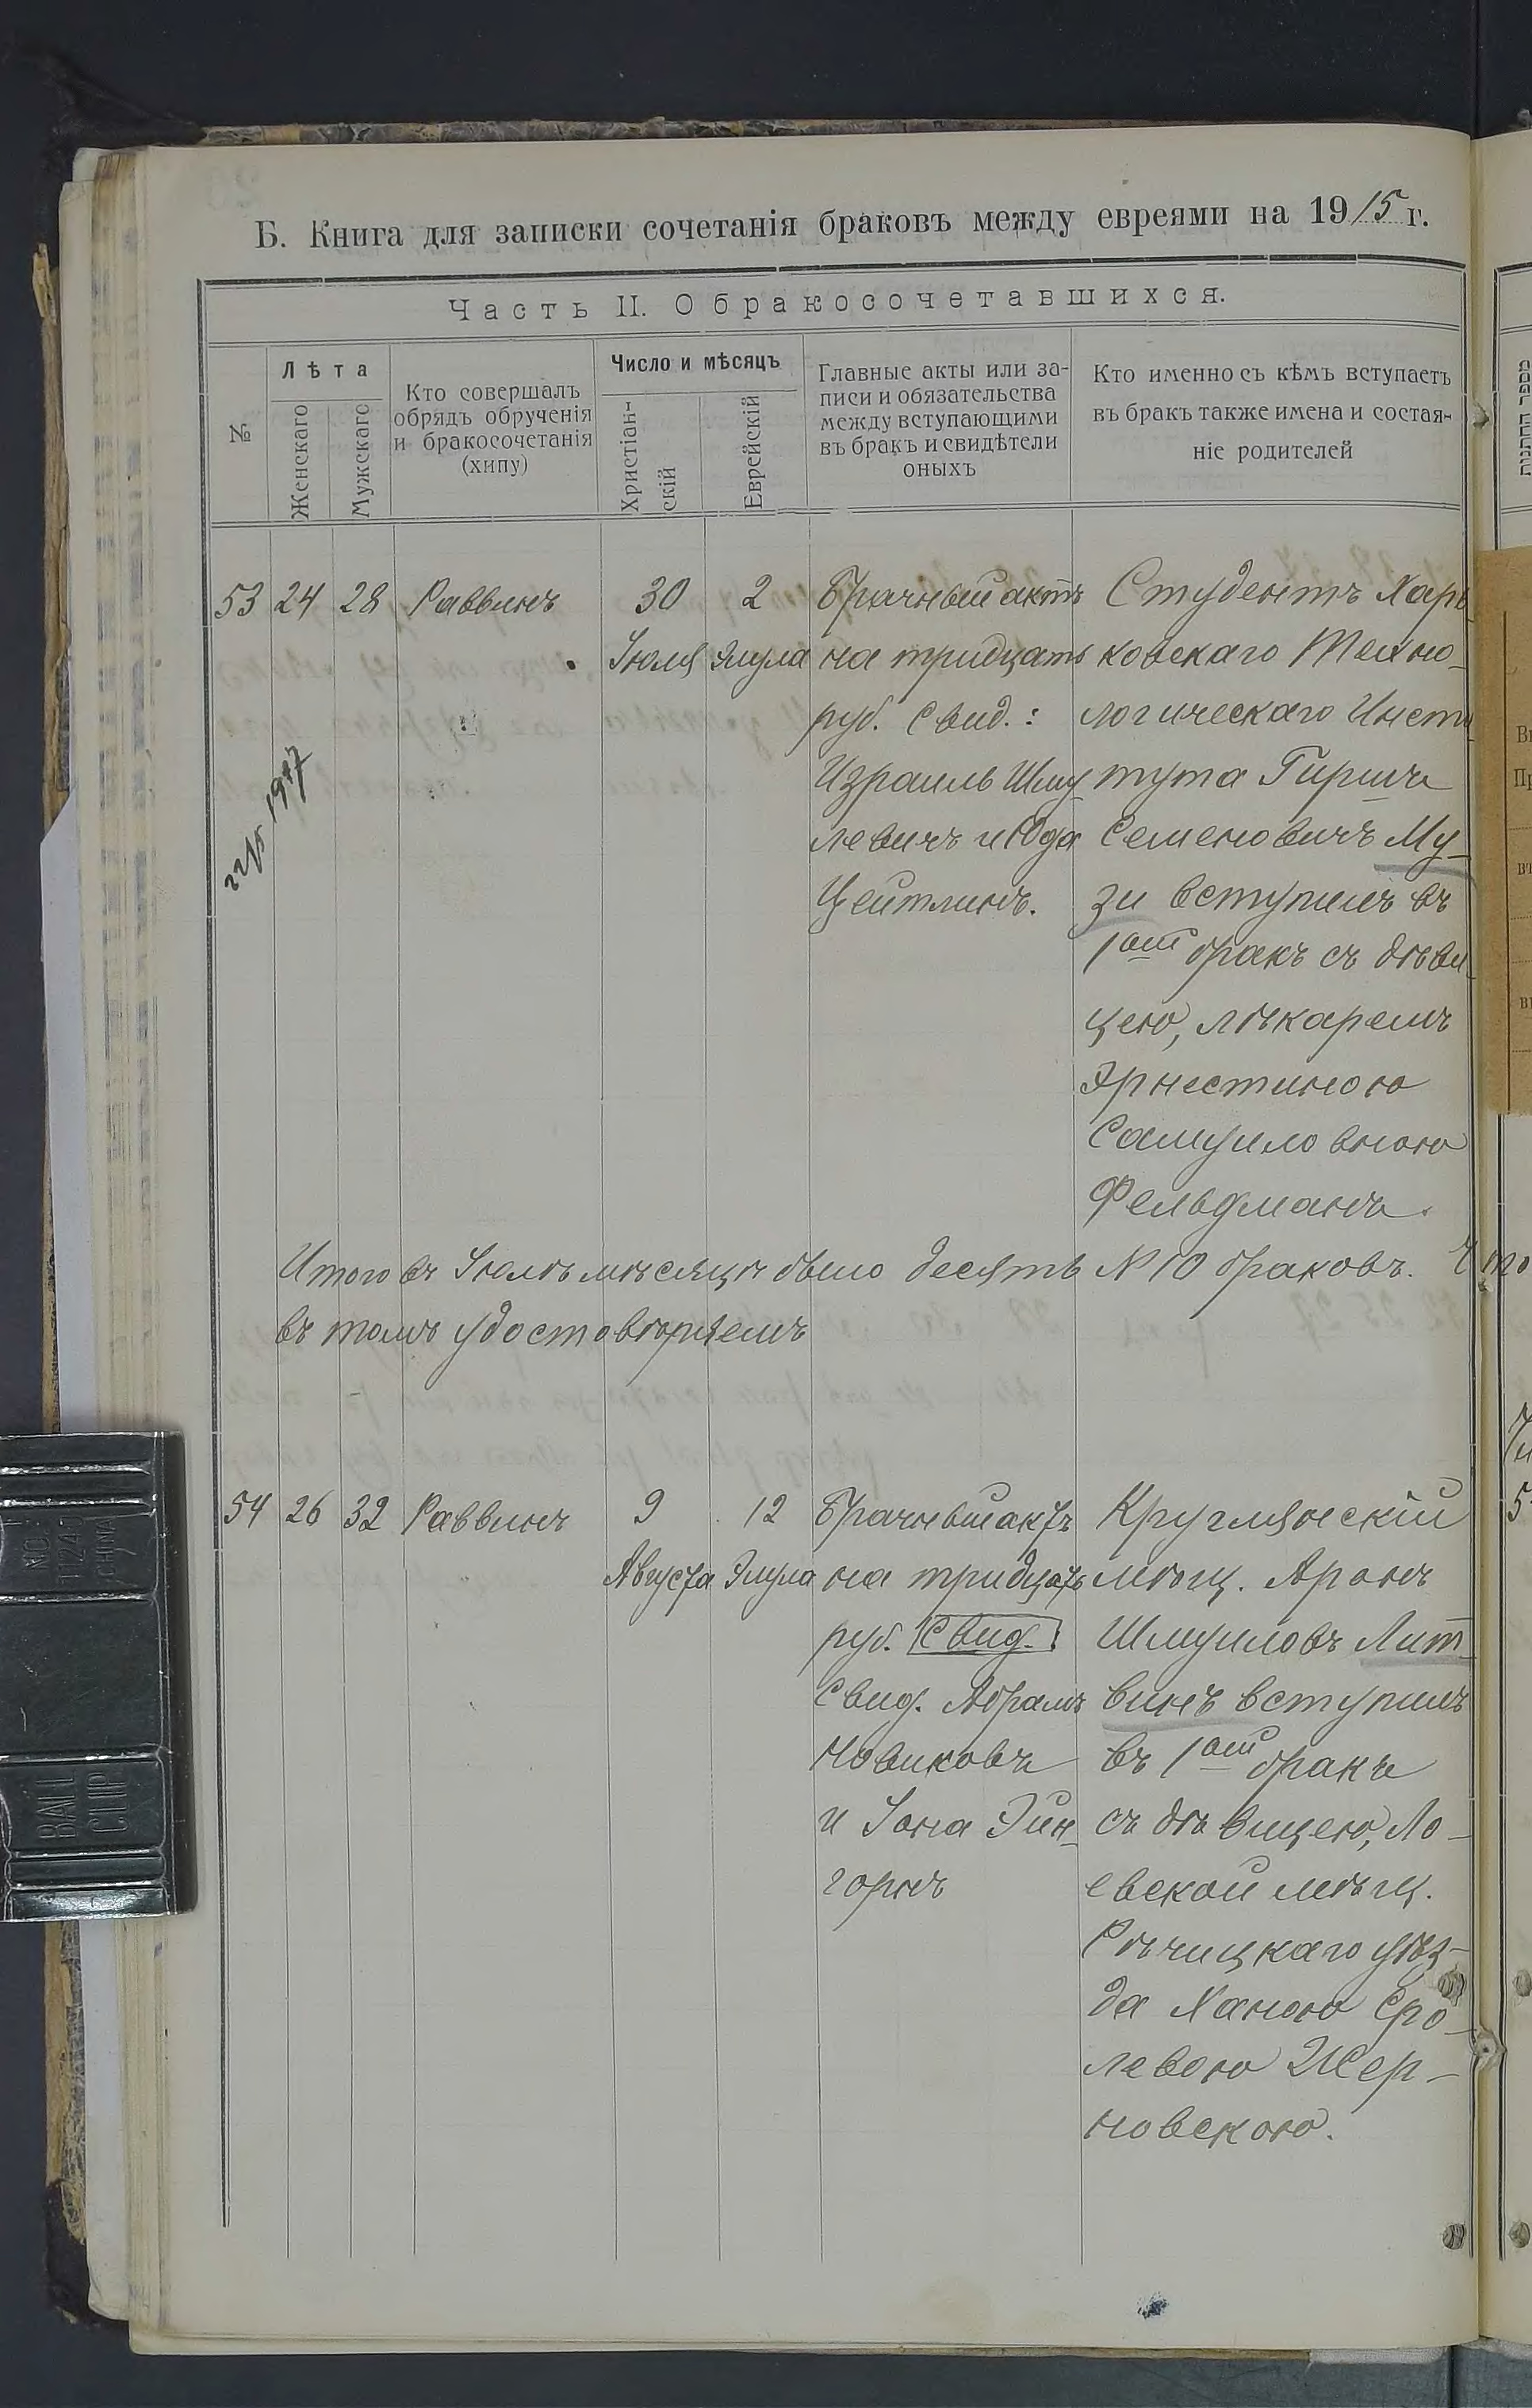 Б. Книга для записки сочетанія браковъ между евреями на 1915 г.
Часть II. О бракосочетавшихся.
№
Лѣта
Женскаго
Мужскаго
Кто совершалъ
обрядъ обрученія
и бракосочетанія
(хипу)
Число и мѣсяцъ
Христіан-
скій
Еврейскій
Главные акты или за-
писи и обязательства
между вступающими
въ бракъ и свидѣтели
оныхъ
Кто именно съ кѣмъ вступаетъ
въ бракъ также имена и состая-
ніе родителей
53 24 28 Раввинъ
30
Іюля
2
Элула
Брачный актъ
на тридцать
руб. Свид.:
Израиль Шму
левичъ и Юда
Цейтлинъ.
Студентъ Харь
ковскаго Техно-
логическаго Инсти
тута Гиршъ
Семеновичъ Му-
зи вступилъ въ
1ый бракъ съ дѣви
цею, лѣкаремъ
Эрнестиною
Самуиловною
Фельдманъ.
Итого въ Іюлѣ мѣсяцѣ было десять № 10 браковъ. Что
въ томъ удостовѣряемъ
54 26 32 Раввинъ
9
Августа
12
Элула
Брачный актъ
на тридцать
руб. Свид.
Свид. Абрамъ
Новиковъ
и Іона Эйн-
горнъ
Круглянскій
мѣщ. Аронъ
Шмуиловъ Лит-
винъ вступилъ
въ 1ый бракъ
съ дѣвицею, Ло-
евской мѣщ.
Рѣчицкаго уѣз-
да Ханою Сро-
левою Жер-
новскою.
NO.
1247
CHINA
BALL
CLIP